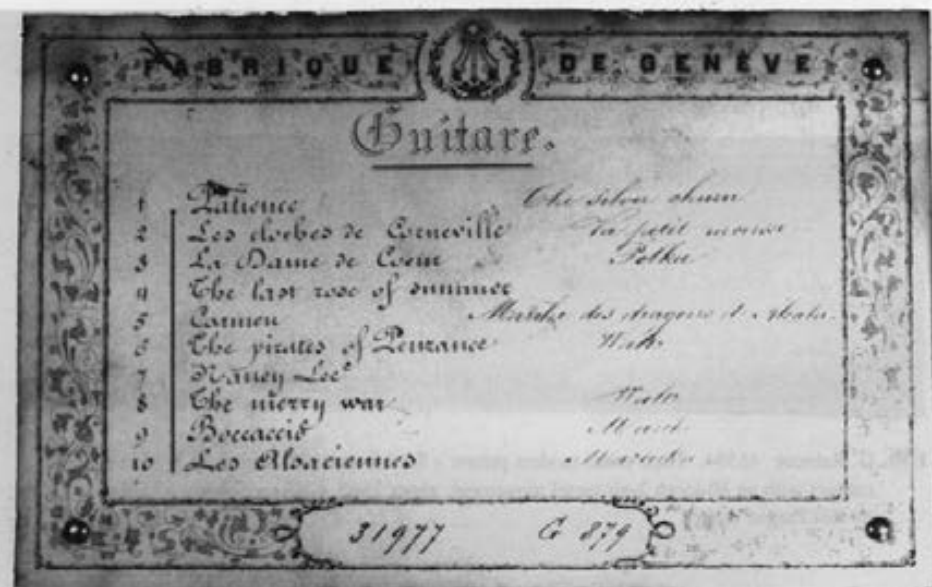 FABRIQUE DE GENÈVE
Guitare.
1 Patience The silver churn
2 Les cloches de Corneville Va petit mousse
3 La Dame de Coeur Polka
4 The last rose of summer
5 Carmen Marche des dragons d'Alcala
6 The pirates of Penzance
7 Nancy Lee
8 The merry war
9 Boccaccio
10 Les Alsaciennes
31977 G 879